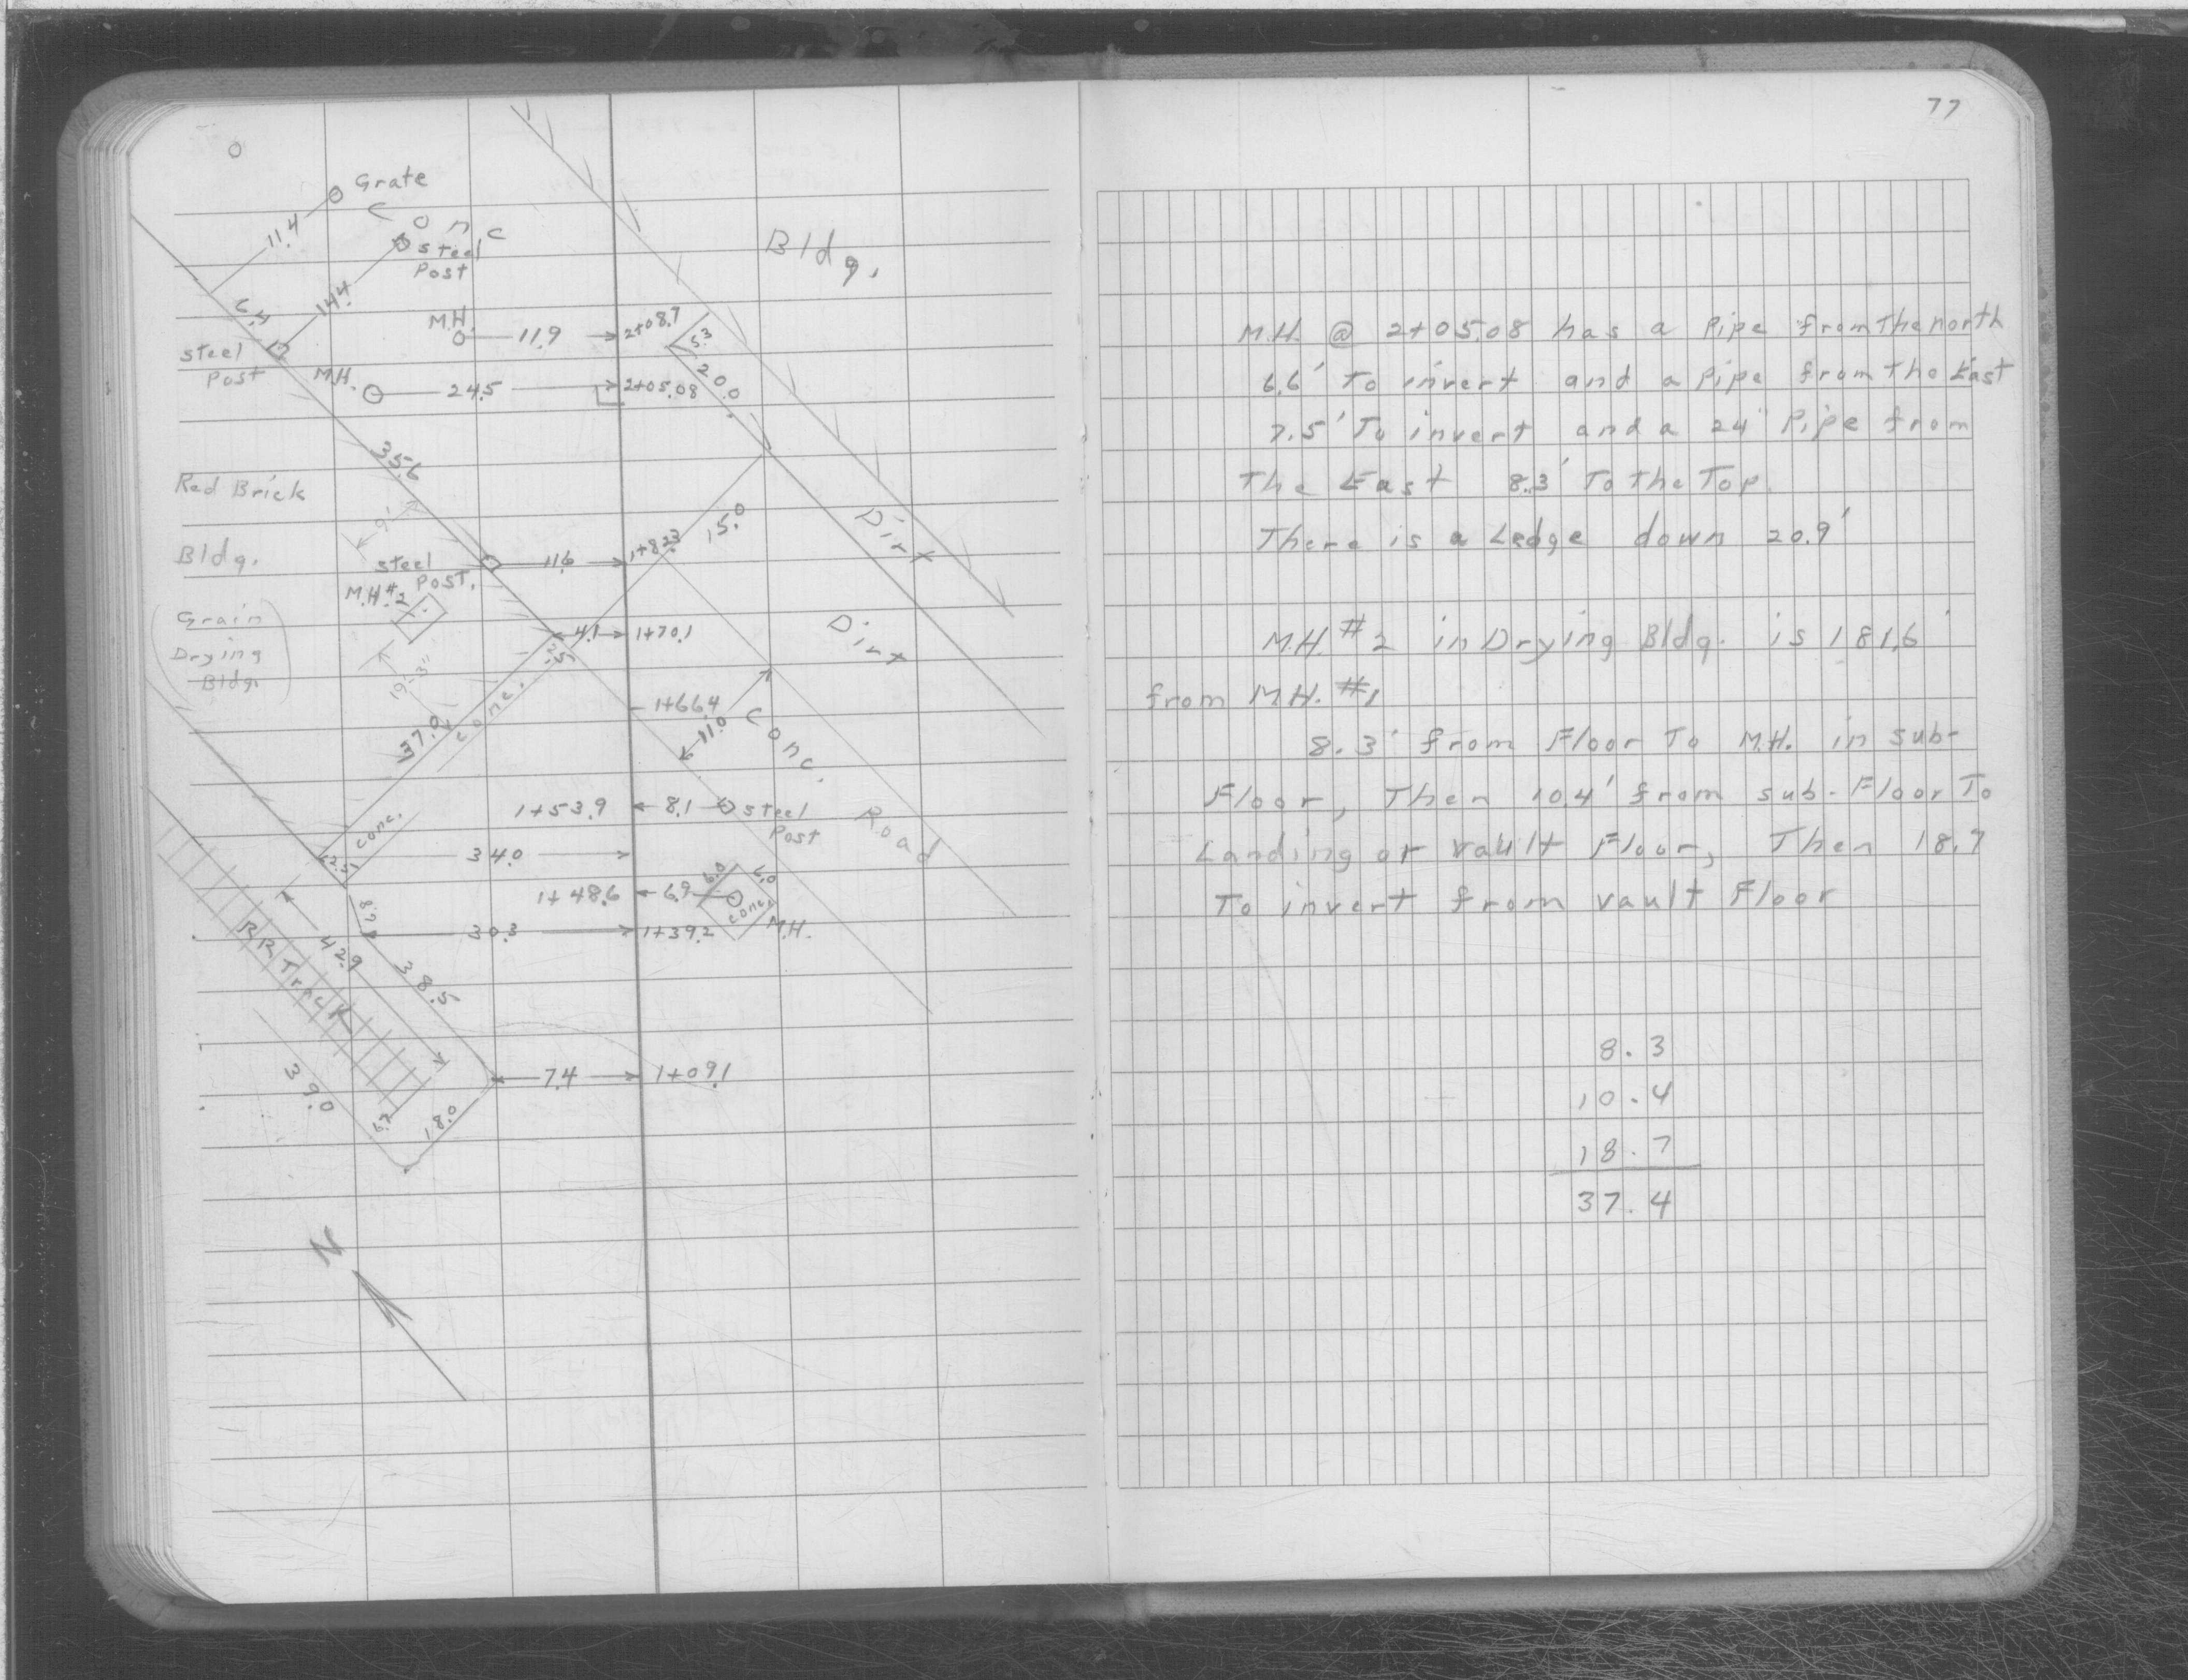 Grate
Conc
11.4
steel
Post
14.4
6.4
steel
Post
Bldg.
M.H.
11.9
2+08.7
5.3
20.0
M.H.
24.5
2+05.08
35.6
Red Brick
Bldg.
(Grain
Drying
Bldg.)
9'
steel
Post.
11.6
1+82.3
15.0
Dirt
M.H.#2
4.1
1+70.1
2.5
Dirt
19'-3"
37.0
conc.
1+66.4
11.0
Conc.
Road
1+53.9
8.1
steel
Post
conc.
2.5
34.0
1+48.6
6.9
6.0
6.0
conc.
M.H.
8.7
30.3
1+39.2
RR Track
42.9
38.5
7.4
1+09.1
39.0
6.7
18.0
N
77
M.H. @ 2+05.08 has a Pipe from The north
6.6' To invert and a Pipe from The East
7.5' To invert and a 24" Pipe from
The East 8.3' To The Top.
There is a Ledge down 20.9'
M.H. #2 in Drying Bldg. is 181.6'
from M.H. #1
8.3' from Floor To M.H. in sub-
Floor, Then 10.4' from sub-Floor To
Landing or vault Floor, Then 18.7
To invert from vault Floor
8.3
10.4
18.7
37.4